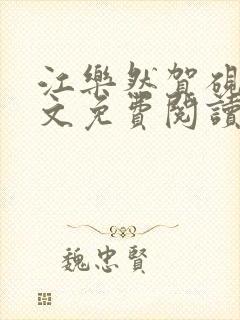 江樂然賀硯
文免費閱讀
魏忠賢